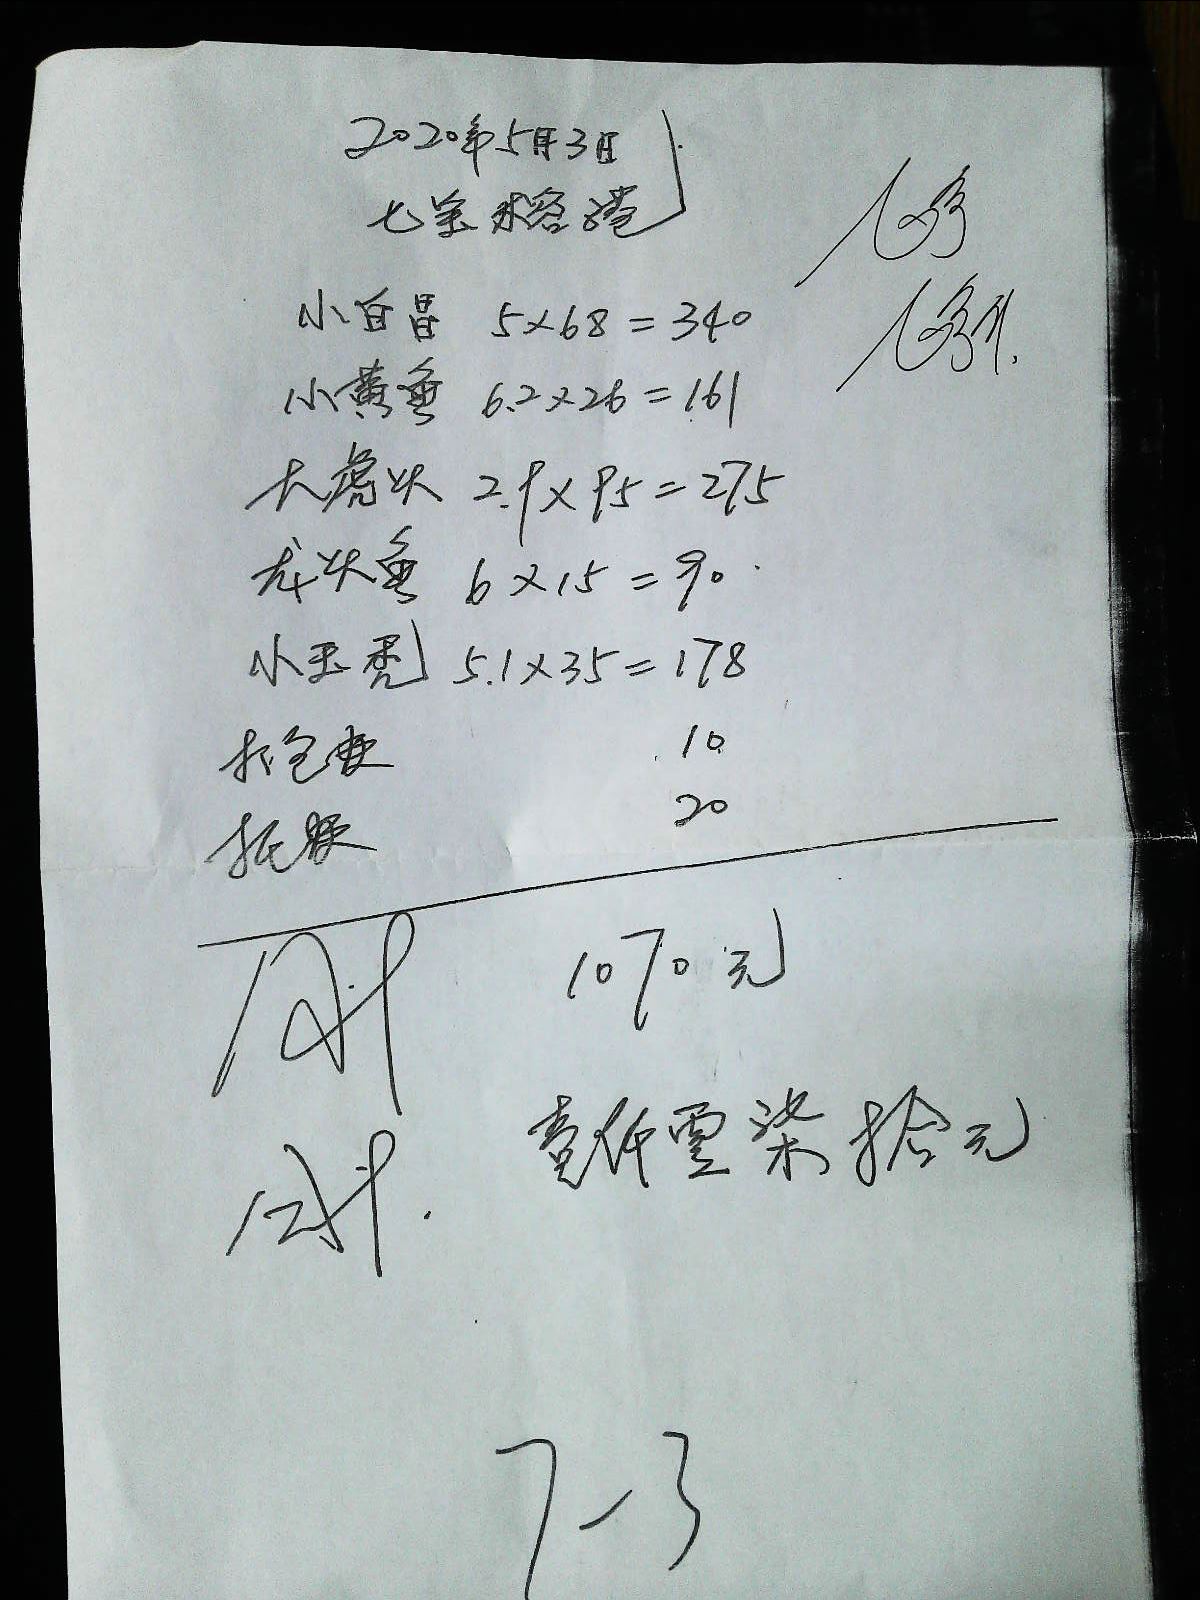 2020年5月3日
小白昌 5×68=340
小黄鱼 6.2×26=161
大虎头 2.9×95=275
龙头鱼 6×15=90
小玉秃 5.1×35=178
打包费 10
托费 20
1070元
壹仟零柒拾元
7-3